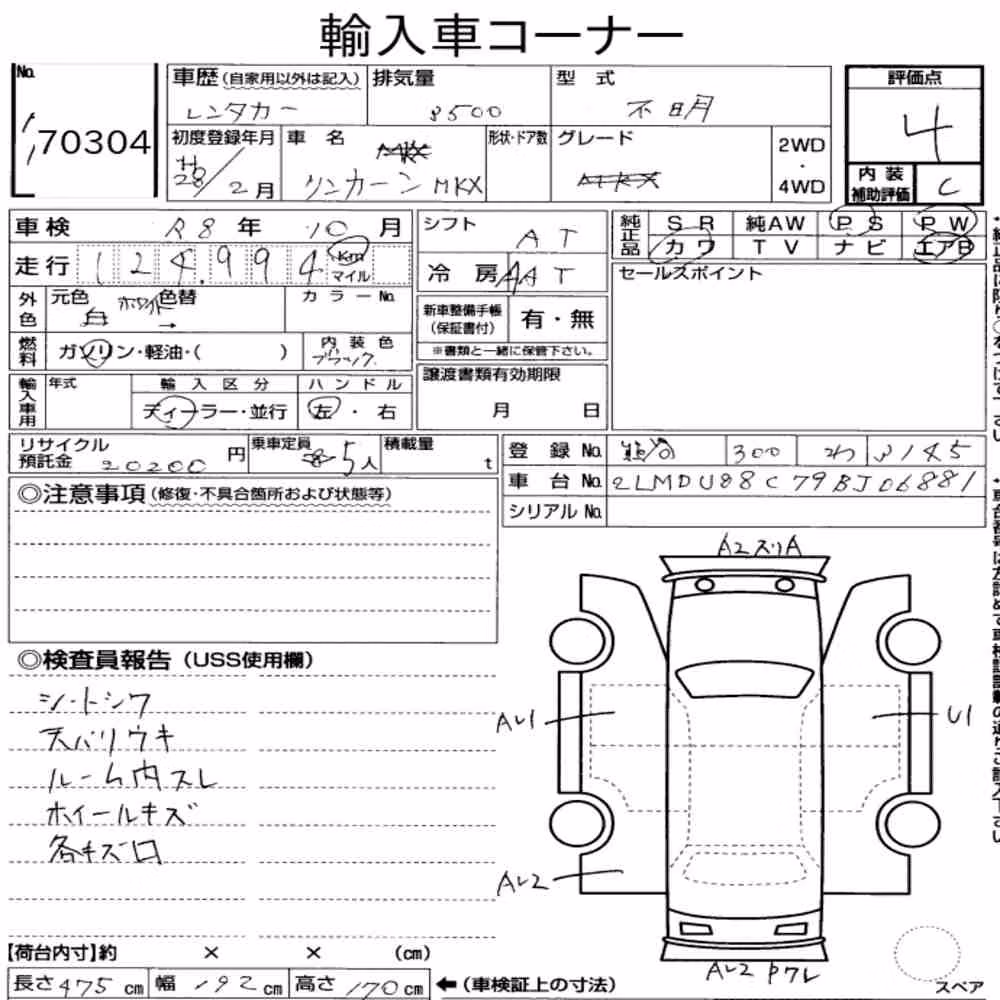 輸入車コーナー
No.
70304
車歴(自家用以外は記入)
レンタカー
排気量
3500
型式
不明
評価点
4
初度登録年月
H28/2月
車名
リンカーン MKX
形状・ドア数
グレード
2WD
・
4WD
内装
補助評価
C
車検 R8年 10月
走行 124,994 Km マイル
シフト
AT
冷房
AAT
純正品
SR 純AW PS PW
カワ TV ナビ エアB
セールスポイント
外色
元色
白
ホワイト
色替
→
カラーNo.
新車整備手帳
(保証書付)
有・無
※書類と一緒に保管下さい。
燃料
ガソリン・軽油・( )
内装色
ブラック
譲渡書類有効期限
月 日
輸入車用
年式
輸入区分
ディーラー・並行
ハンドル
左・右
リサイクル
預託金 20200円
乗車定員
5人
積載量
t
登録No. 300 わ 3145
車台No. 2LMDU88C79BJ06881
シリアルNo.
◎注意事項(修復・不具合箇所および状態等)
◎検査員報告(USS使用欄)
シートシワ
天バリウキ
ルーム内スレ
ホイールキズ
各キズ凹
A2スリA
U1
スペア
【荷台内寸】約 × × (cm)
長さ475cm 幅192cm 高さ170cm ←(車検証上の寸法)